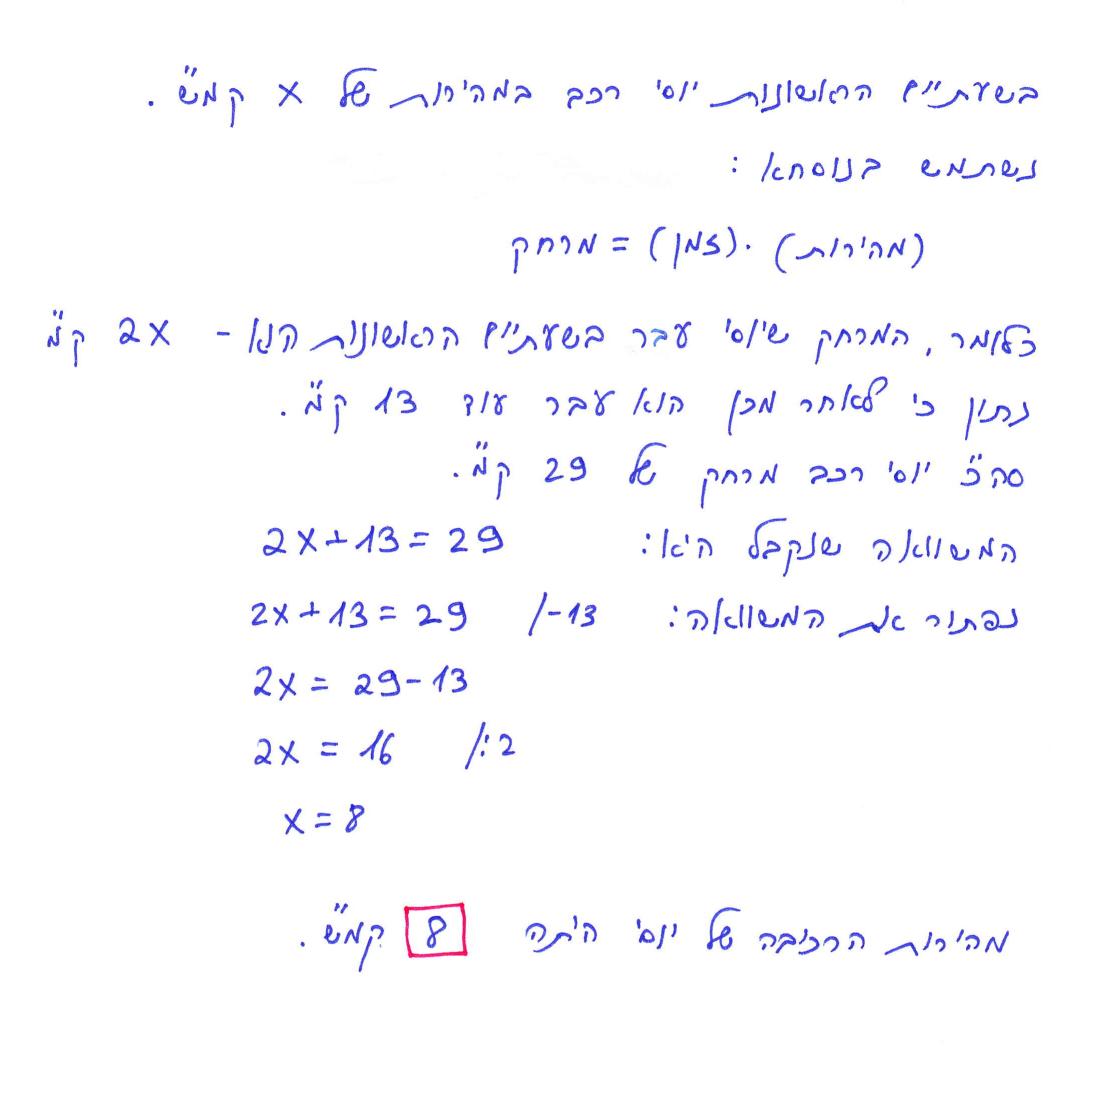 בשעתיים הראשונות יוסי רכב במהירות של x קמ"ש.
נשתמש בנוסחא:
(מהירות) · (זמן) = מרחק
כלומר, המרחק שיוסי עבר בשעתיים הראשונות הוא - 2x ק"מ
נתון כי לאחר מכן הוא עבר עוד 13 ק"מ.
סה"כ יוסי רכב מרחק של 29 ק"מ.
המשוואה שנקבל היא: 2x+13=29
נפתור את המשוואה: 2x+13=29 /-13
2x = 29-13
2x = 16 /:2
x=8
מהירות הרכיבה של יוסי היתה 8 קמ"ש.